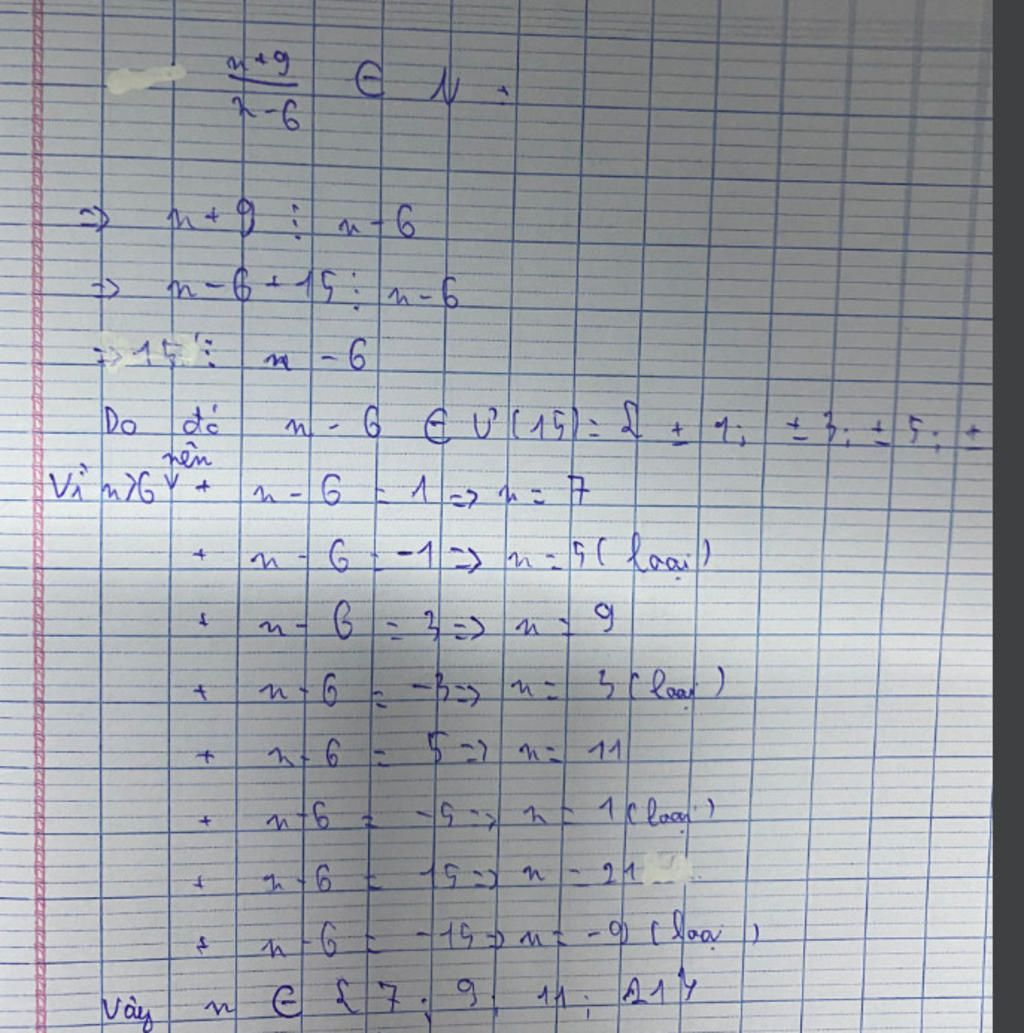 n+9 / n-6 ∈ N.
=> n + 9 ⋮ n - 6
=> n - 6 + 15 ⋮ n - 6
=> 15 ⋮ n - 6
Do đó n - 6 ∈ Ư(15) = { ± 1; ± 3; ± 5; ±
Vì n>6 nên + n - 6 = 1 => n = 7
+ n - 6 = -1 => n = 5 (loại)
+ n - 6 = 3 => n = 9
+ n - 6 = -3 => n = 3 (loại)
+ n - 6 = 5 => n = 11
+ n - 6 = -5 => n = 1 (loại)
+ n - 6 = 15 => n = 21
+ n - 6 = -15 => n = -9 (loại)
Vậy n ∈ { 7; 9; 11; 21}